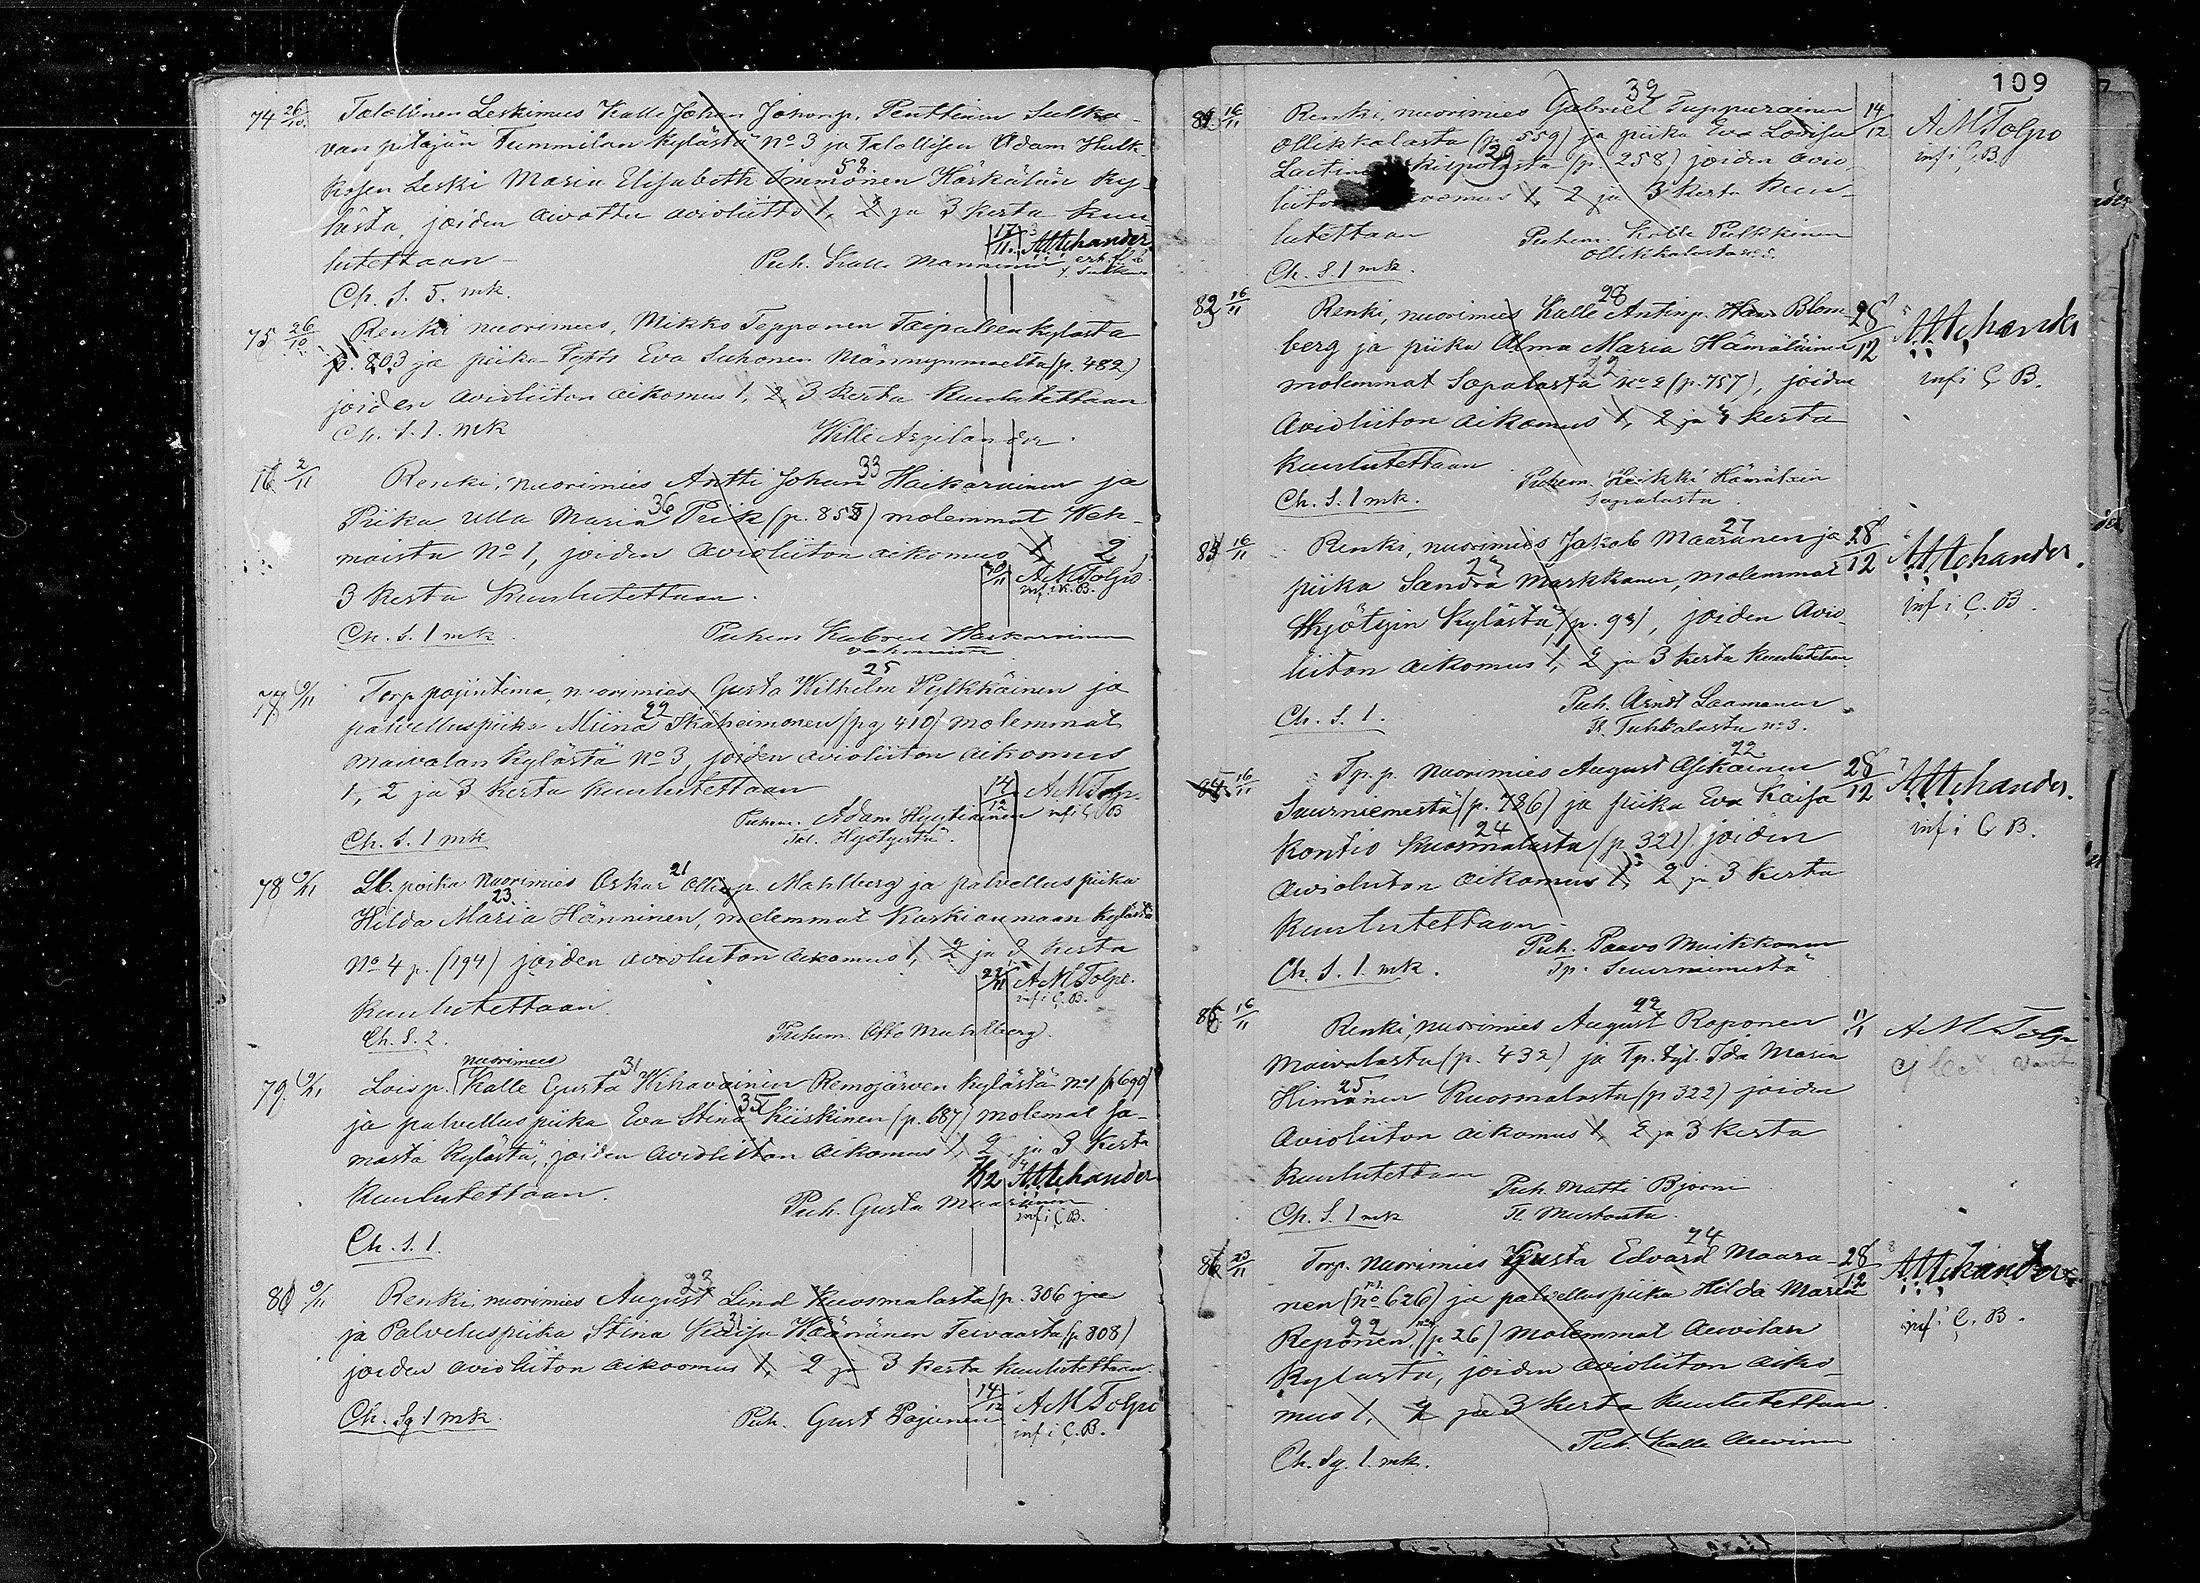 109
74 26/10. Talollinen Leskimies Kalle Johan Johanp. Penttinen Sulka-
van pitäjän Tummilan kylästä No 3 ja Talollisen Adam Hulk-
kosen Leski Maria Elisabeth Immonen 52 Härkälän ky-
lästä, joiden aivottu avioliitto 1, 2 ja 3 kerta kuu-
lutettaan
Puh. Kalle Manninen
Ch. S. 5. mk.
75 26/10 Renki nuorimies, Mikko Tepponen Taipaleen kylästä
p. 803 ja piika Eva Suhonen Männynmaelta (p. 482)
joiden avioliiton aikomus 1, 2, 3 kerta kuulutettaan
Ch. S. 1. mk Wille Argilander.
76 2/11 Renki, nuorimies Antti Johan 33 Haikarainen ja
Piika Ulla Maria 36 Peik (p. 858) molemmat Weh-
maista No 1, joiden avioliiton aikomus 1, 2,
3 kerta kuulutettaan.
AMTolpo
inf i k. B.
Ch. S. 1 mk. Puhem Kabriel Haikarainen
77 9/11 Torp pojintima, nuorimies Gusta Wilhelm 25 Pylkkäinen ja
palvelluspiika Miina 22 Ikäheimonen (pg 410) molemmat
Maivalan kylästä No 3, joiden avioliiton aikomus
1, 2 ja 3 kerta kuulutettaan
14/12 AMTolpo
inf i C. B
Puhem. Adam Hyytiäinen
Tal. Hyötystä.
Ch. S. 1 mk
78 9/11 Lb. poika nuorimies Oskar 21 Ollinp. Mahlberg ja palvelluspiika
Hilda Maria 23 Hänninen, molemmat Kaskianmaan kylästä
No 4 p. (194) joiden avioliiton aikomus 1, 2 ja 3 kerta
kuulutettaan.
AMTolpo.
inf i C. B.
Ch. S. 2. Puhem. Otto Mahlberg.
79 9/11 Loisp. nuorimies Kalle Gusta 31 Wihavainen Remojärven kylästä No 1 (p 690)
ja palvelluspiika Eva Stina 35 Kiiskinen (p. 687) molemat sa-
masta kylästä, joiden avioliiton aikomus 1, 2 ja 3 kerta
kuulutettaan.
Puh. Gusta Maaranen
inf i C. B.
Ch. S. 1.
80 9/11 Renki, nuorimies August 23 Lind Kuosmalasta (p. 306 ja
ja Palveluspiika Stina Kaisa 31 Häänänen Teivaasta (p. 808)
joiden avioliiton aikoomus 1, 2 ja 3 kerta kuulutettaan.
14/12 AMTolpo
inf i C. B.
Ch. Sg 1 mk. Puh. Gust Pajunen
81 16/11 Renki, nuorimies Gabriel 32 Tuppurainen 14/12 AMTolpo
Ollikkalasta (p. 559) ja piika Eva Lovisa inf i C. B.
(p. 258) joiden avio-
1, 2 ja 3 kerta kuu-
lutettaan Puhem. Kalle Pulkkinen
Ollikkalasta
Ch. S. 1 mk.
82 16/11 Renki, nuorimies Kalle 28 Antinp. Blom- 28/12
berg ja piika Alma Maria Hämäläinen
molemmat Sopalasta 22 No 2 (p. 757), joiden inf i C B.
avioliiton aikomus 1, 2 ja 3 kerta
kuulutettaan
Puhem. Heikki Hämäläin
Sopalasta.
Ch. S. 1 mk.
83 16/11 Renki, nuorimies Jakob Maaranen 27 ja 28/12
piika Sandra Markkanen, molemmat
Hyötyin kylästä, (p. 93), joiden avio- inf i C. B.
liiton aikomus 1, 2 ja 3 kerta kuulutetaan
Puh. Arndt Laamanen
Tl. Tuhkalasta no 3.
Ch. S. 1.
84 16/11 Tp. p. nuorimies August Asikainen 22 28/12
Suurniemestä (p. 786) ja piika Eva Kaisa
Kontio 24 Kuosmalasta (p. 321) joiden inf i C B.
avioliiton aikomus 1, 2 ja 3 kerta
kuulutettaan
Puh. Paavo Muikkonen
Tp. Suurniemestä
Ch. S. 1. mk.
85 16/11 Renki, nuorimies August 22 Roponen 11/1 AMTolpo
Maivalasta (p. 432) ja Tp. tyt. Ida Maria
Himanen 25 Kuosmalasta (p 322) joiden
avioliiton aikomus 1, 2 ja 3 kerta
kuulutettaan Puh. Matti Bjorni
Ch. S. 1 mk
86 23/11 Torp. nuorimies Gusta Edvard 24 Maara- 28/12
nen (no 626) ja palvelluspiika Hilda Maria
Reponen 22 (p 26) molemmat Auvilan inf i C. B.
kylästä, joiden avioliiton aiko-
mus 1, 2 ja 3 kerta kuulutettaan.
Puh. Kalle Auvinen
Ch. Sg. 1. mk.